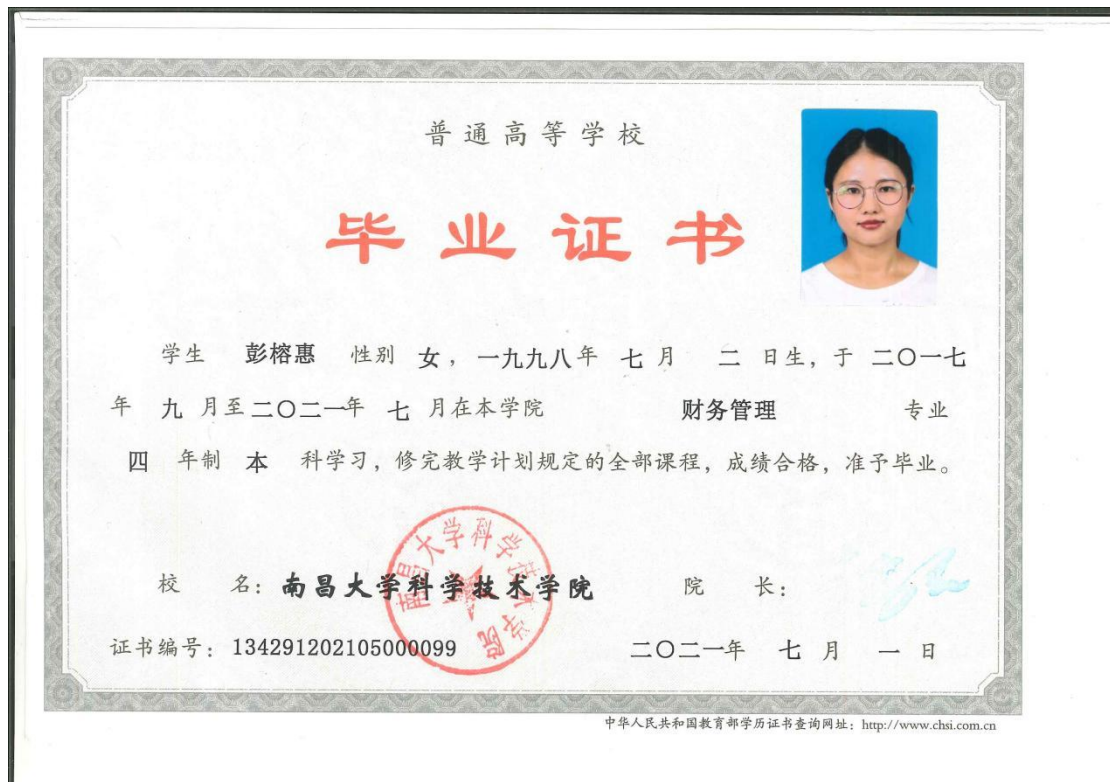 普通高等学校
毕业证书
学生 彭榕惠 性别 女，一九九八年 七 月 二 日生，于 二〇一七
年 九 月至二〇二一年 七 月在本学院 财务管理 专业
四 年制 本 科学习，修完教学计划规定的全部课程，成绩合格，准予毕业。
南昌大学科学技术学院
校 名：南昌大学科学技术学院 院 长：
证书编号：134291202105000099 二〇二一年 七 月 一 日
中华人民共和国教育部学历证书查询网址：http://www.chsi.com.cn